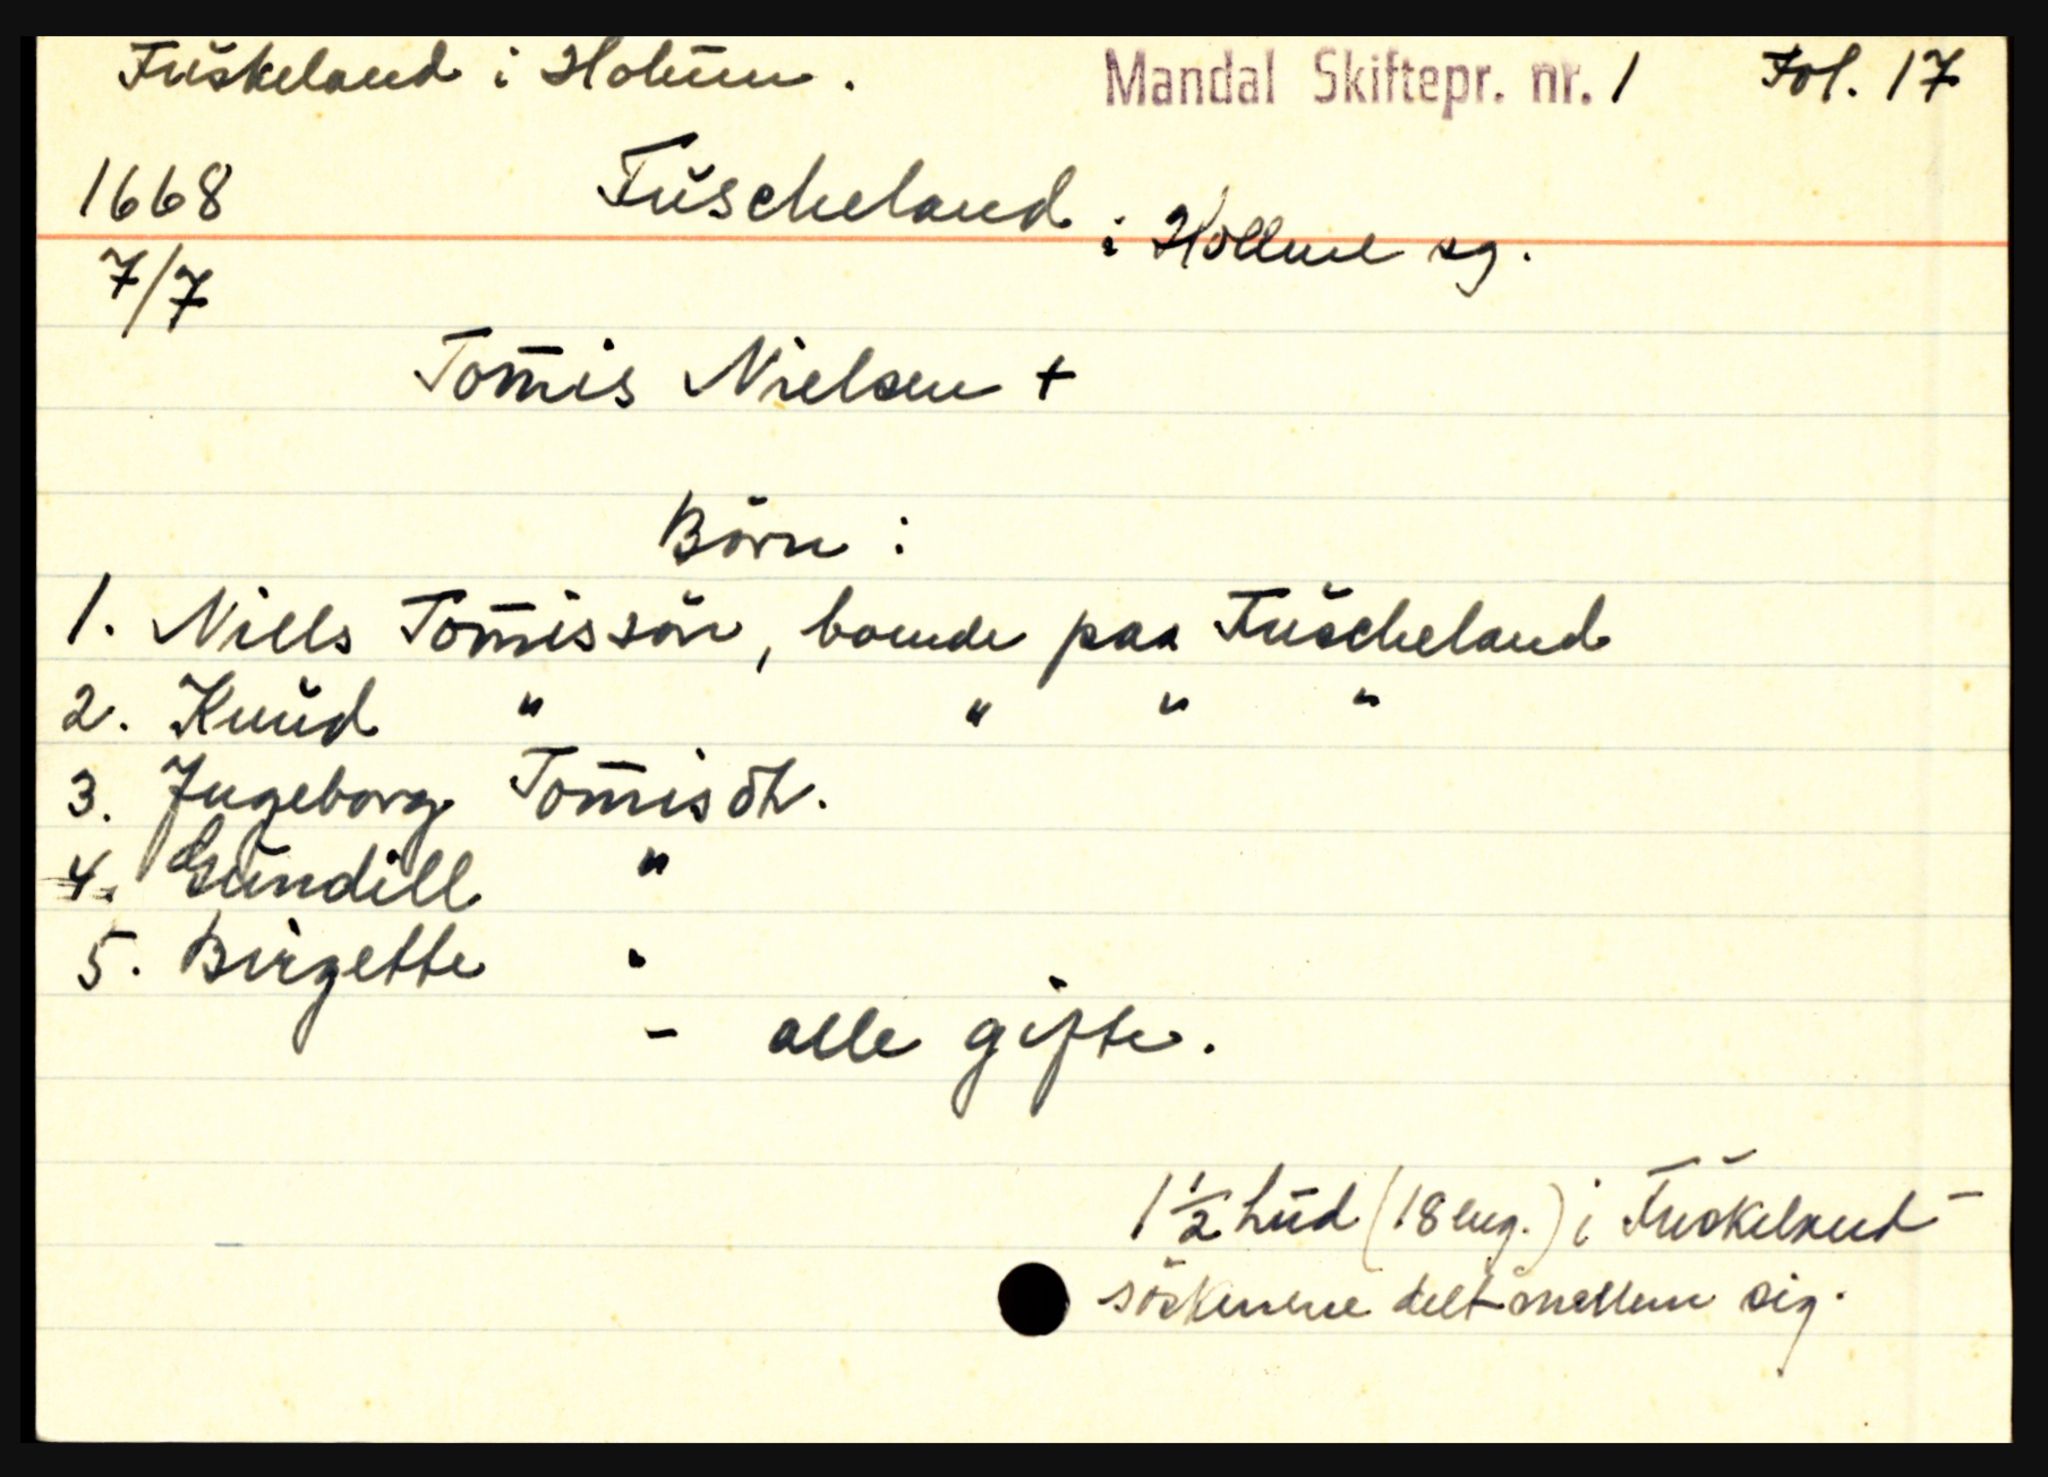 Fuskeland i Holum. Mandal Skiftepr. nr. 1 Fol. 17
1668 Fuscheland i Hollme sg.
7/7
Tom̄is Nielsen +
Børn :
1. Niels Tom̄issøn, boende paa Fuscheland
2. Knud " " " "
3. Ingeborg Tom̄isdt.
4. Gundill "
5. Birgette "
- alle gifte.
1 1/2 hud (18 eng.) i Fuskeland -
søskenene delt mellem sig.